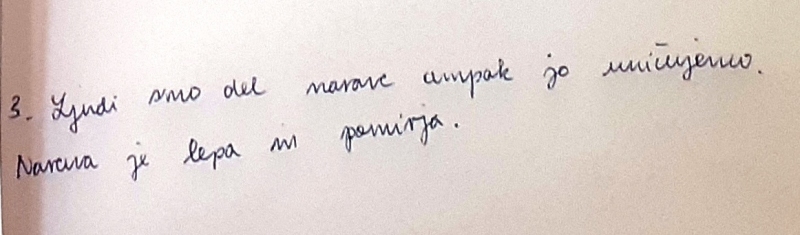 3. Ljudi smo del narave ampak jo uničujemo.
Narava je lepa in pomirja.